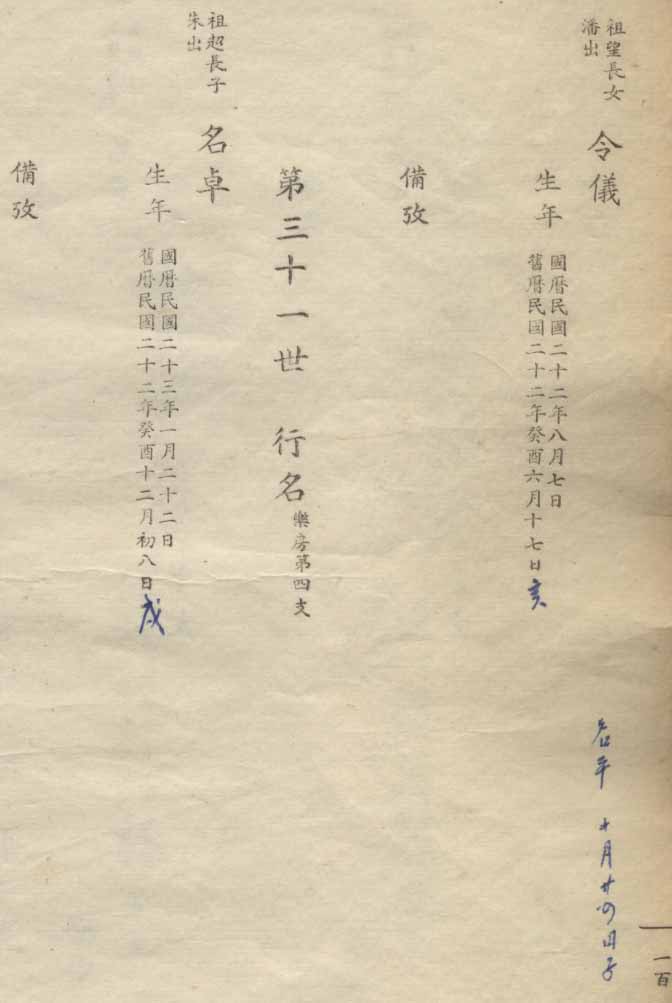 祖望長女
潘出
令儀
生年
國曆民國二十二年八月七日
舊曆民國二十二年癸酉六月十七日亥
備攷
第三十一世　行名樂房第四支
祖超長子
朱出
名卓
生年
國曆民國二十三年一月二十二日
舊曆民國二十二年癸酉十二月初八日戌
備攷
名平　十月廿四日子
一百